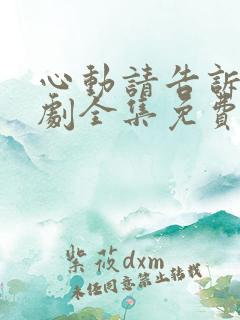 心動請告訴
劇全集免費
紫莜dxm
未经同意禁止转载